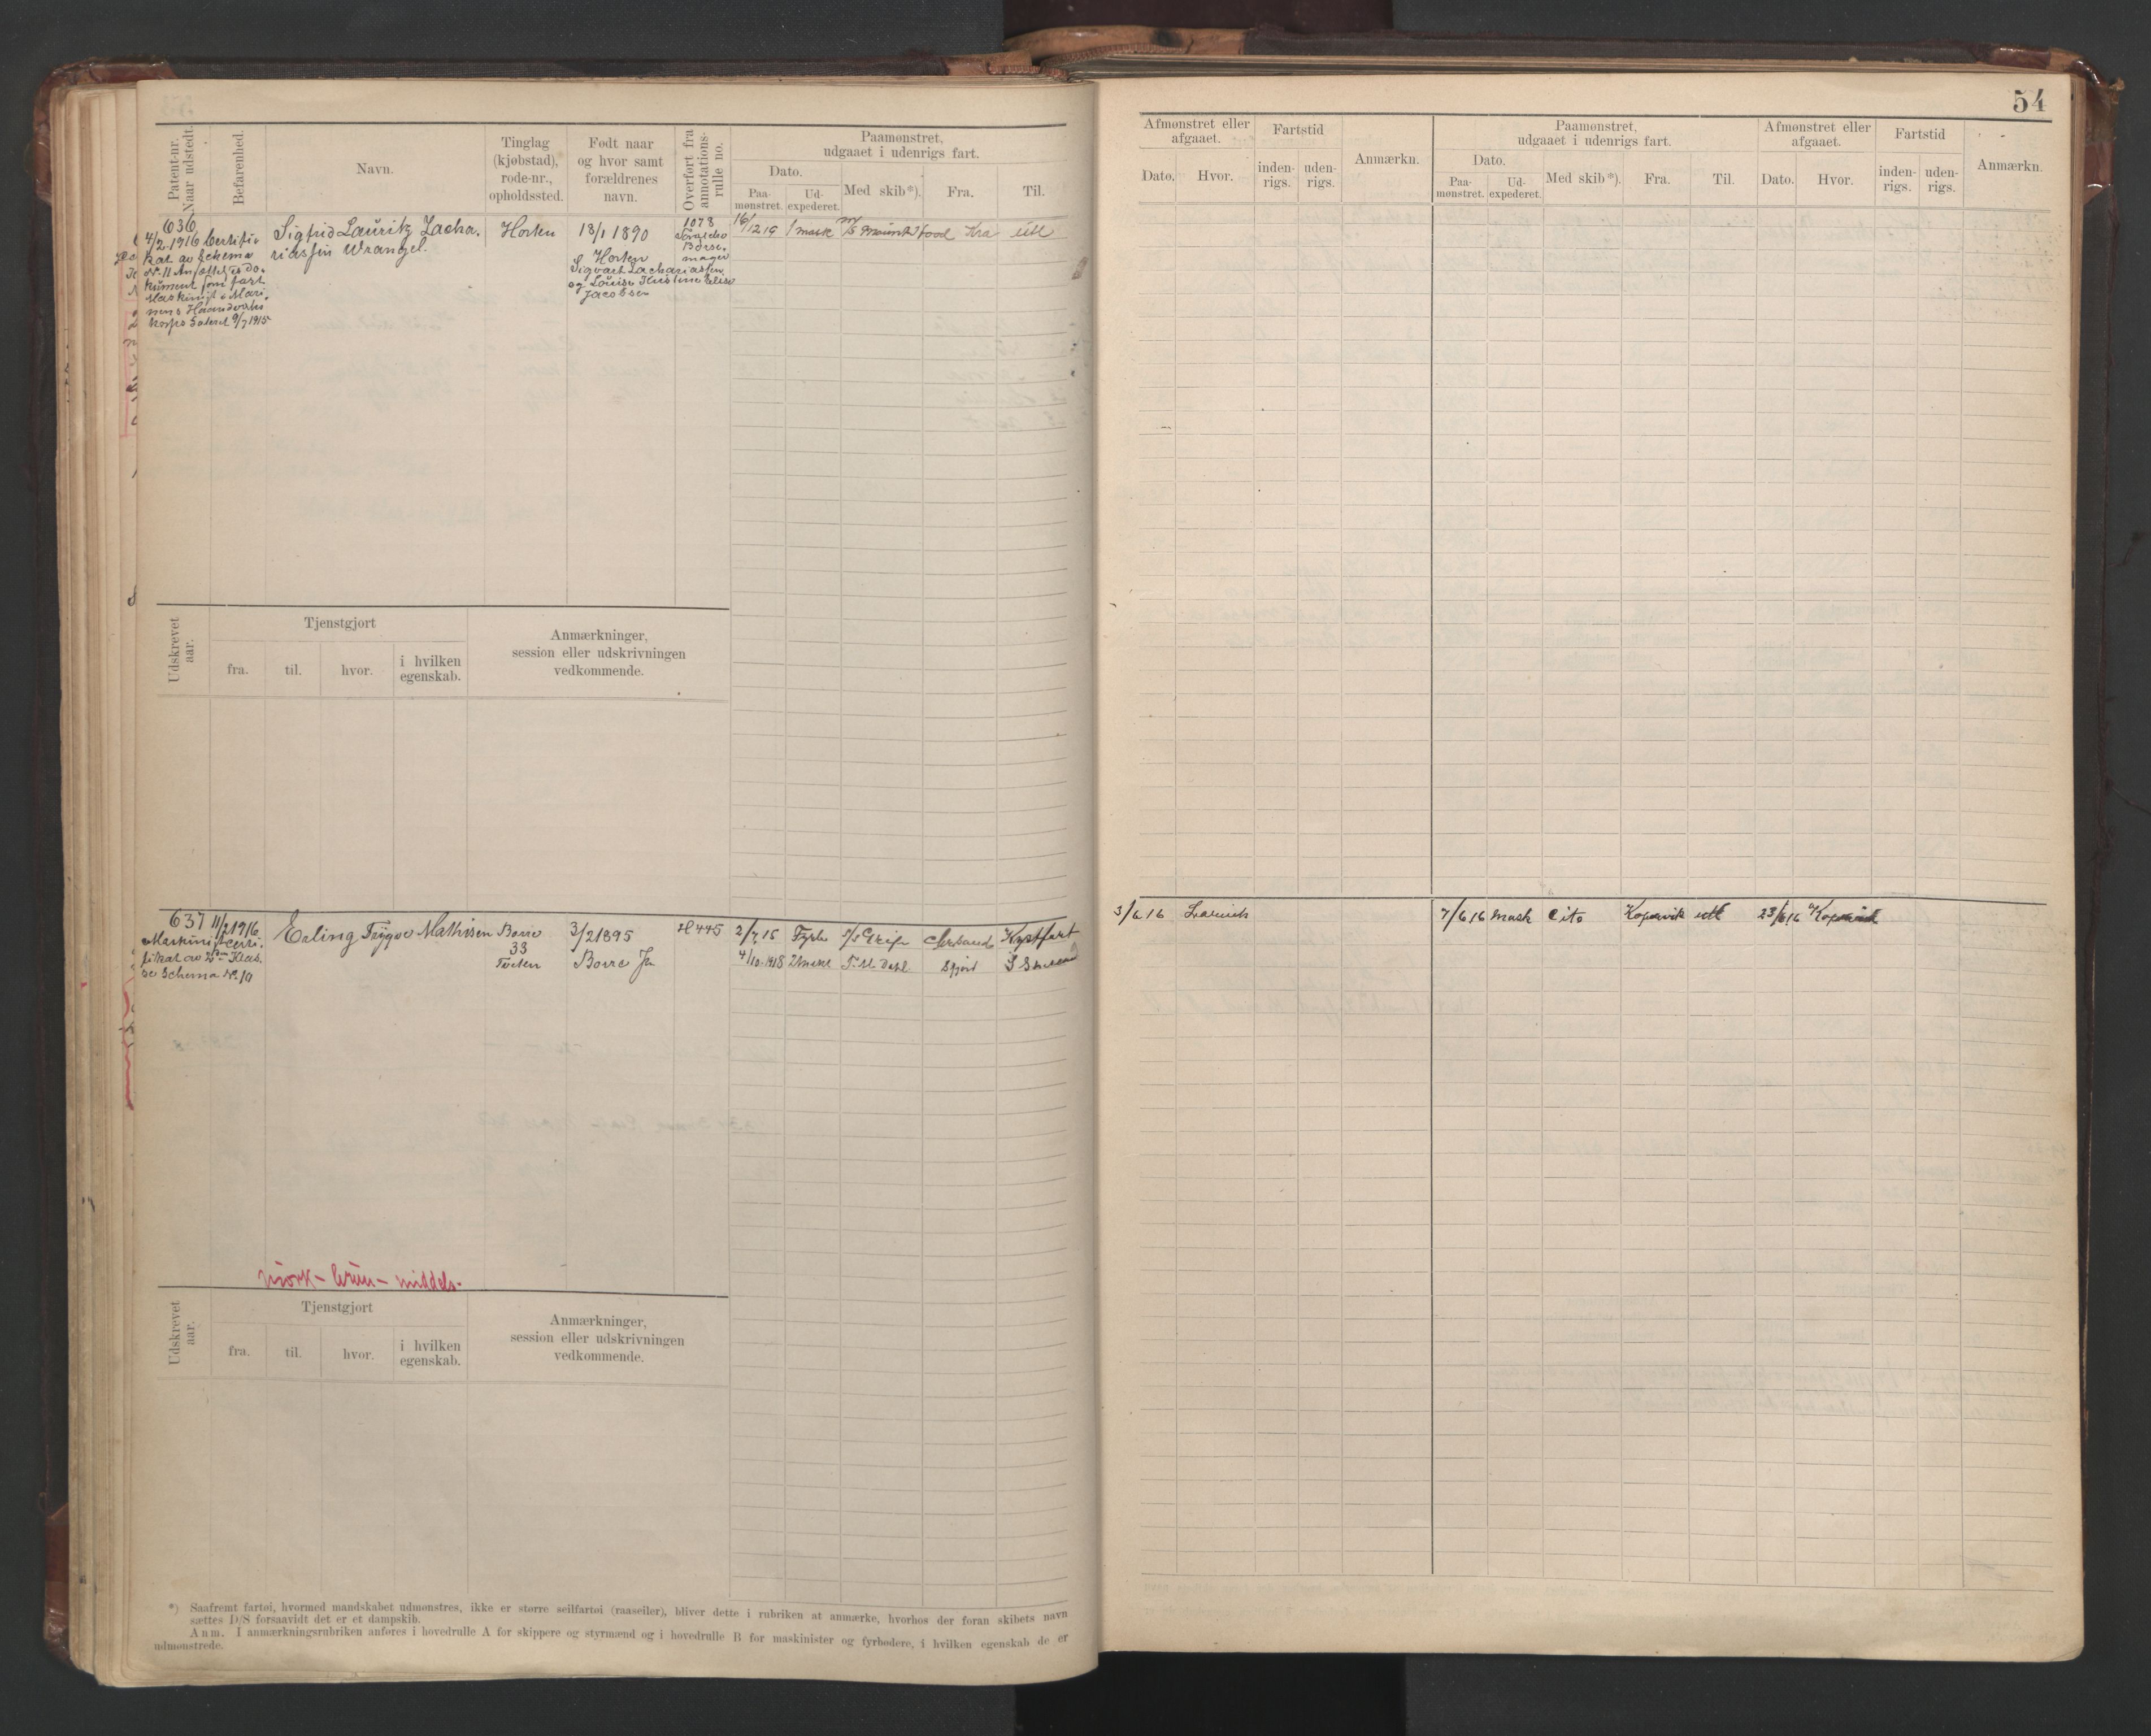 54
Patent-nr. Naar udstedt.
Befarenhed.
Navn.
Tinglag (kjøbstad), rode-nr., opholdssted.
Født naar og hvor samt forældrenes navn.
Overført fra annotations-rulle no.
Paamønstret, udgaaet i udenrigs fart.
Dato.
Paa-mønstret.
Ud-expederet.
Med skib*).
Fra.
Til.
Afmønstret eller afgaaet.
Dato.
Hvor.
Fartstid
inden-rigs.
uden-rigs.
Anmærkn.
Paamønstret, udgaaet i udenrigs fart.
Dato.
Paa-mønstret.
Ud-expederet.
Med skib*).
Fra.
Til.
Afmønstret eller afgaaet.
Dato.
Hvor.
Fartstid
inden-rigs.
uden-rigs.
Anmærkn.
636
4/2 1916 Certifi-
kat av Schema
Nr. 11
kument som
Maskinist i Mari-
nens Haandverks
korps dateret 9/7 1915
Sigfrid Lauritz Zacha-
riassen Wrangel.
Horten
13/1 1890
Horten
Sigvart Zachariassen
og Louise
Jacobsen
1073
16/12 19 1 mask M/S Kra utl
Udskrevet aar.
Tjenstgjort
fra.
til.
hvor.
i hvilken egenskab.
Anmærkninger, session eller udskrivningen vedkommende.
637 11/2 1916
Maskinistcerti-
fikat av 2den Klas-
se Schema Nr. 10
Erling Trygve Mathisen
Borre
33
3/2 1895
Borre
H 445
2/7 15 Fyrb S/S Kystfart
4/10-1918 2 mask Dahl
3/6 16
7/6 16 mask Cito Kopervik utl 23/6 16 Kopervik
mörk - brun - middels.
Udskrevet aar.
Tjenstgjort
fra.
til.
hvor.
i hvilken egenskab.
Anmærkninger, session eller udskrivningen vedkommende.
*) Saafremt fartøi, hvormed mandskabet udmønstres, ikke er større seilfartøi (raaseiler), bliver dette i rubriken at anmærke, hvorhos der foran skibets navn
sættes D/S forsaavidt det er et dampskib.
Anm. I anmærkningsrubriken anføres i hovedrulle A for skippere og styrmænd og i hovedrulle B for maskinister og fyrbødere, i hvilken egenskab de er
udmønstrede.